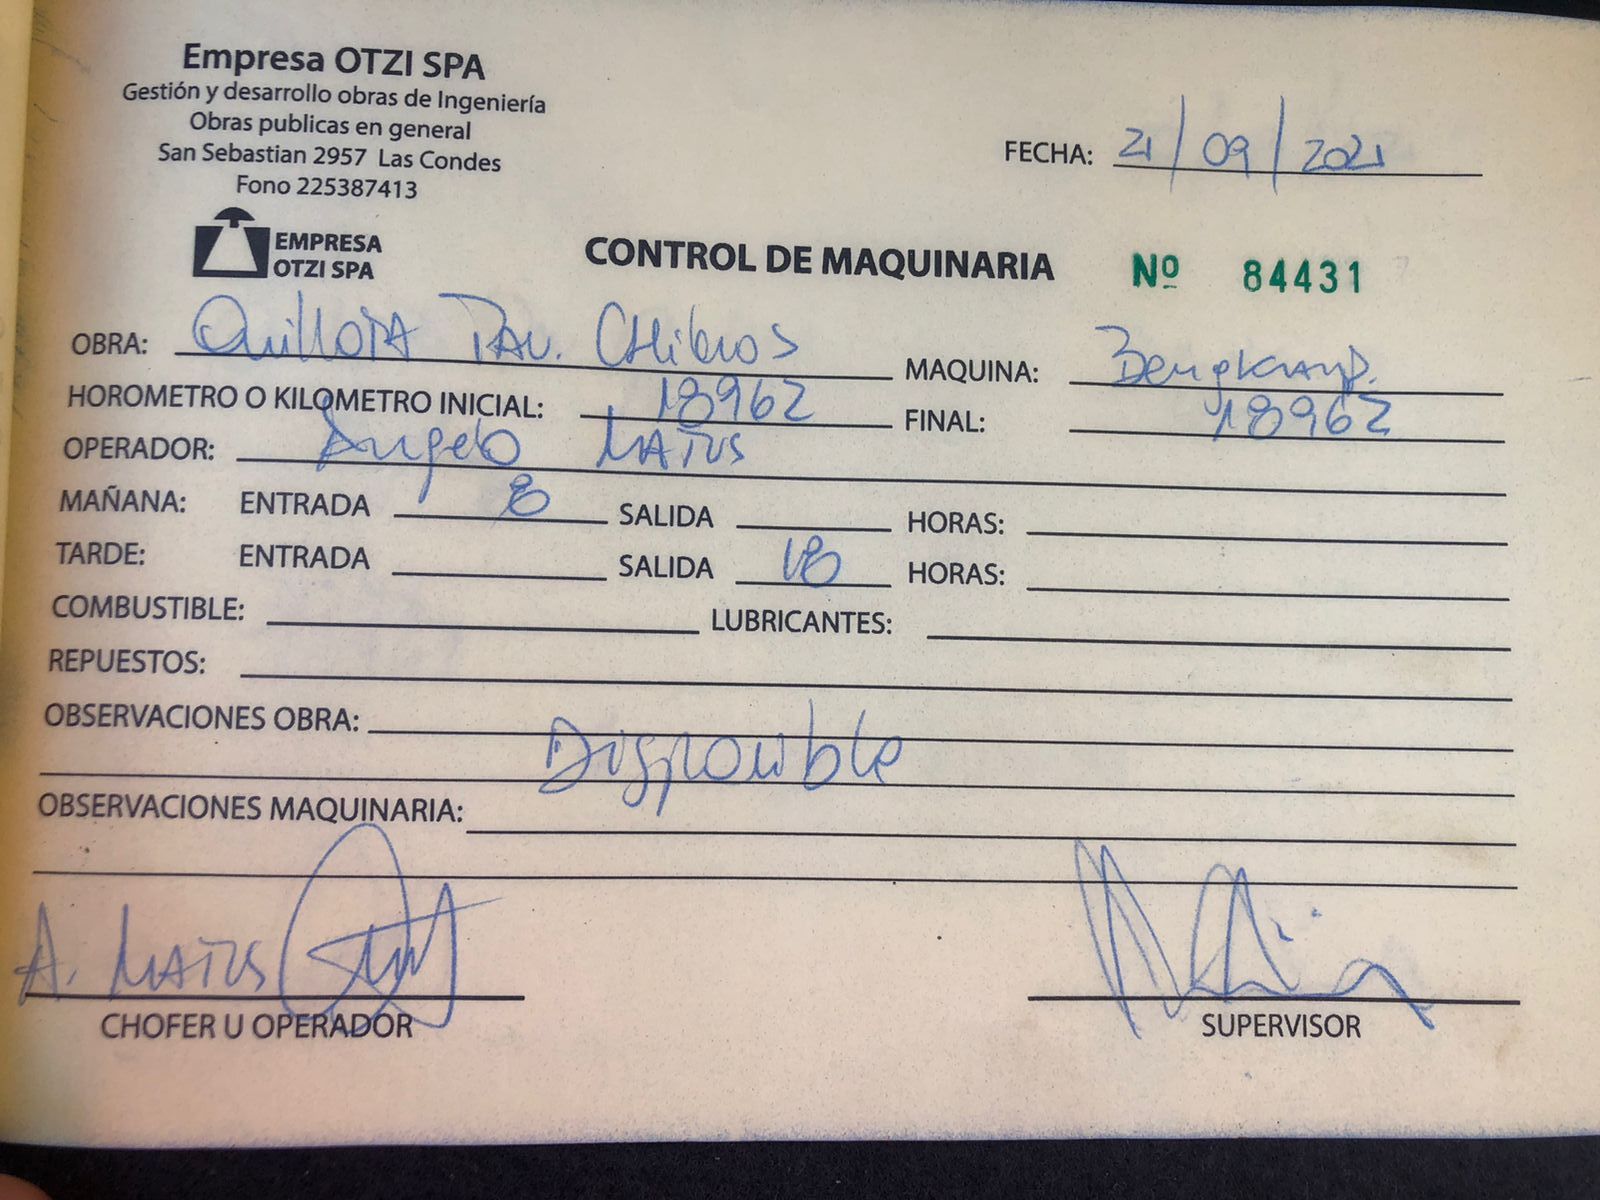 Empresa OTZI SPA
Gestión y desarrollo obras de Ingeniería
Obras publicas en general
San Sebastian 2957 Las Condes
Fono 225387413
FECHA: 21/09/2021
EMPRESA
OTZI SPA
CONTROL DE MAQUINARIA Nº 84431
OBRA: Quillota Pav.
MAQUINA:
HOROMETRO O KILOMETRO INICIAL: 18962 FINAL: 18962
OPERADOR: Angelo MATUS
MAÑANA: ENTRADA 8 SALIDA HORAS:
TARDE: ENTRADA SALIDA 18 HORAS:
COMBUSTIBLE: LUBRICANTES:
REPUESTOS:
OBSERVACIONES OBRA:
Disponible
OBSERVACIONES MAQUINARIA:
A. MATUS
CHOFER U OPERADOR SUPERVISOR